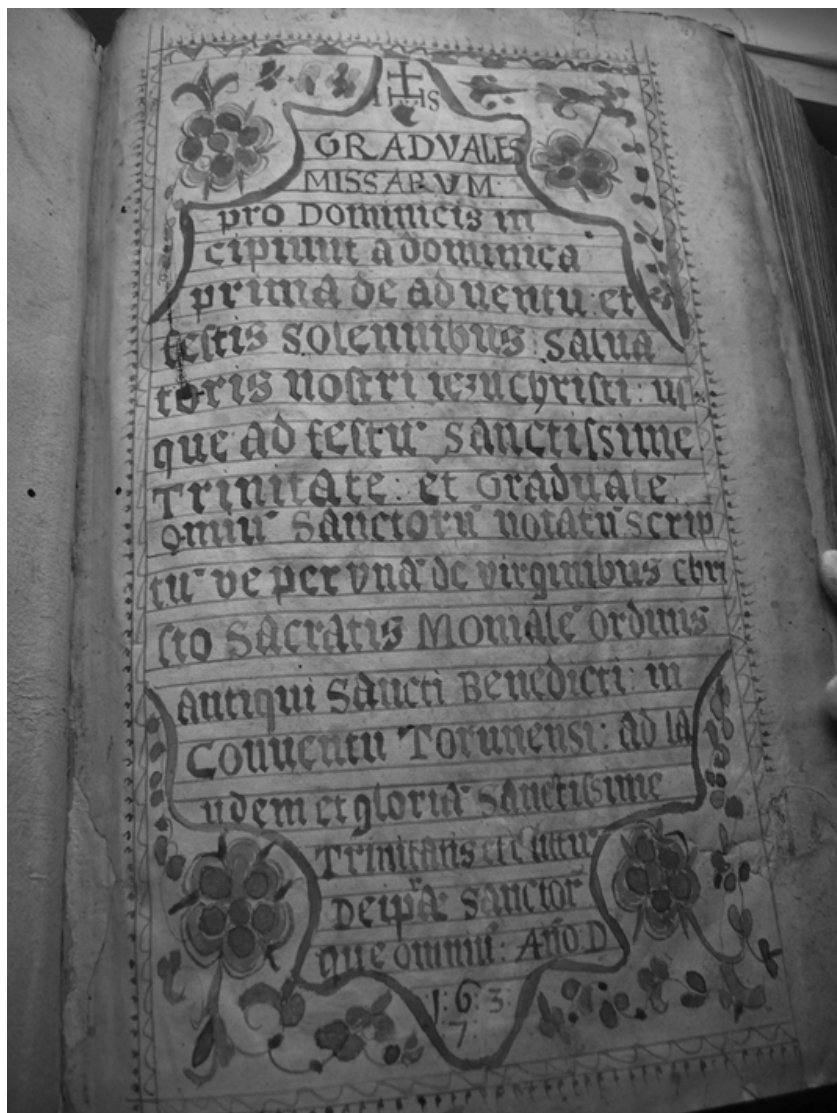 IHS
GRADVALES
MISSARVM
pro Dominicis in
cipiunt a dominica
prima de aduentu et
festis solennibus: salua
toris nostri iezu christi: us
que ad festu sanctissime
Trinitate: et Graduale
omiu sanctoru notatu scrip
tu ve per vna de virginibus chri
sto sacratis Moniale ordinis
antiqui sancti Benedicti: in
Conuentu Torunensi: ad la
udem et gloria sanctissime
Trinitatis et
Deipa sanctor
que omniu: Año D
1:6:3:
7: